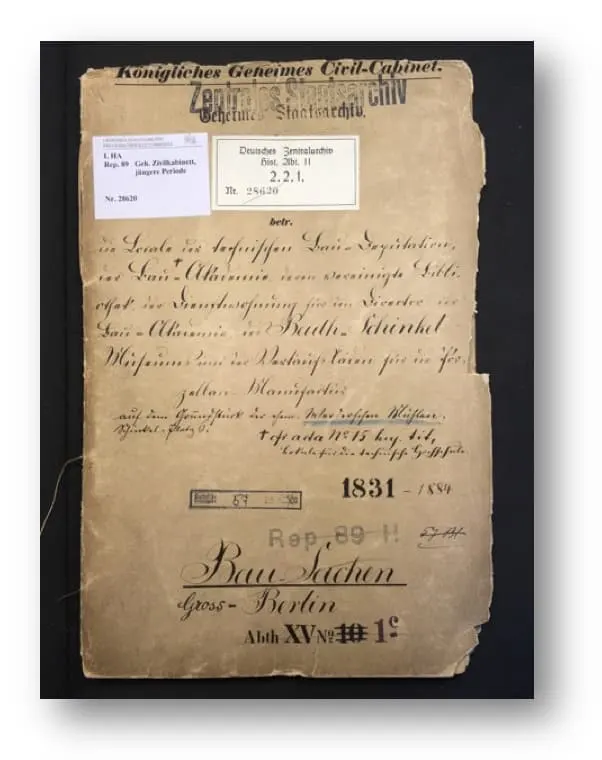 Königliches Geheimes Civil-Cabinet.
Zentrales Staatsarchiv
Geheimes Staatsarchiv.
I. HA
Rep. 89 Geh. Zivilkabinett,
jüngere Periode
Nr. 28620
Deutsches Zentralarchiv
Hist. Abt. II
2.2.1.
Nr. 28620
betr.
die Locale der technischen Bau-Deputation,
der Bau-Akademie, deren vereinigte Bibli-
othek, der Dienstwohnung für den Director der
Bau-Akademie, des Beuth-Schinkel
Museums und der Verkaufs-Läden für die Por-
zellan-Manufactur
auf dem Grundstück der ehem. Werderschen Mühlen.
Schinkel-Platz 6.
† cfr ada No 15 tit,
Lokale für die technische Hochschule
1831 - 1884
57
Rep 89 H
Bau-Sachen
Gross-Berlin
Abth XV No 10 1c